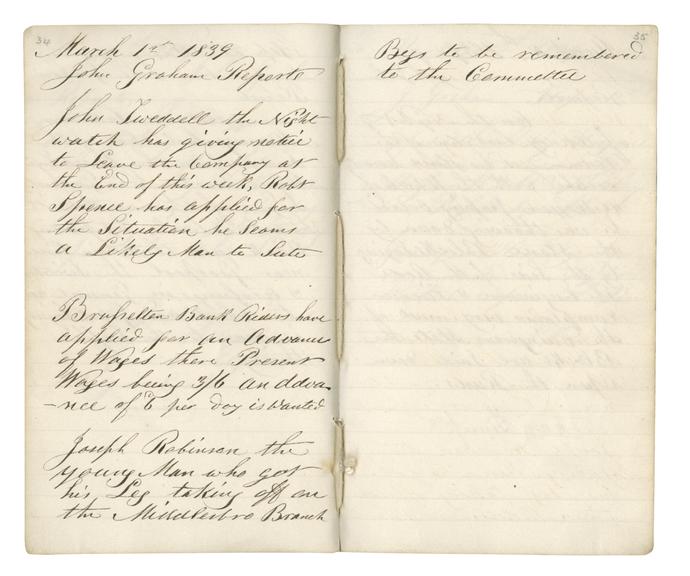 34
March 1st 1839
John Graham Reports
John Tweddell the Night
watch has giving notice
to Leave the Company at
the End of this week, Robt
Spence has applied for
the Situation he Seams
a Likely Man to Sute
Brusselton Bank Riders have
applied for an Advance
of Wages there Present
Wages being 3/6 an Adva
-nce of per day is Wanted
Joseph Robinson the
young Man who got
his Leg taking off on
the Middlesbro Branch
35
Begs to be remembered
to the Committee